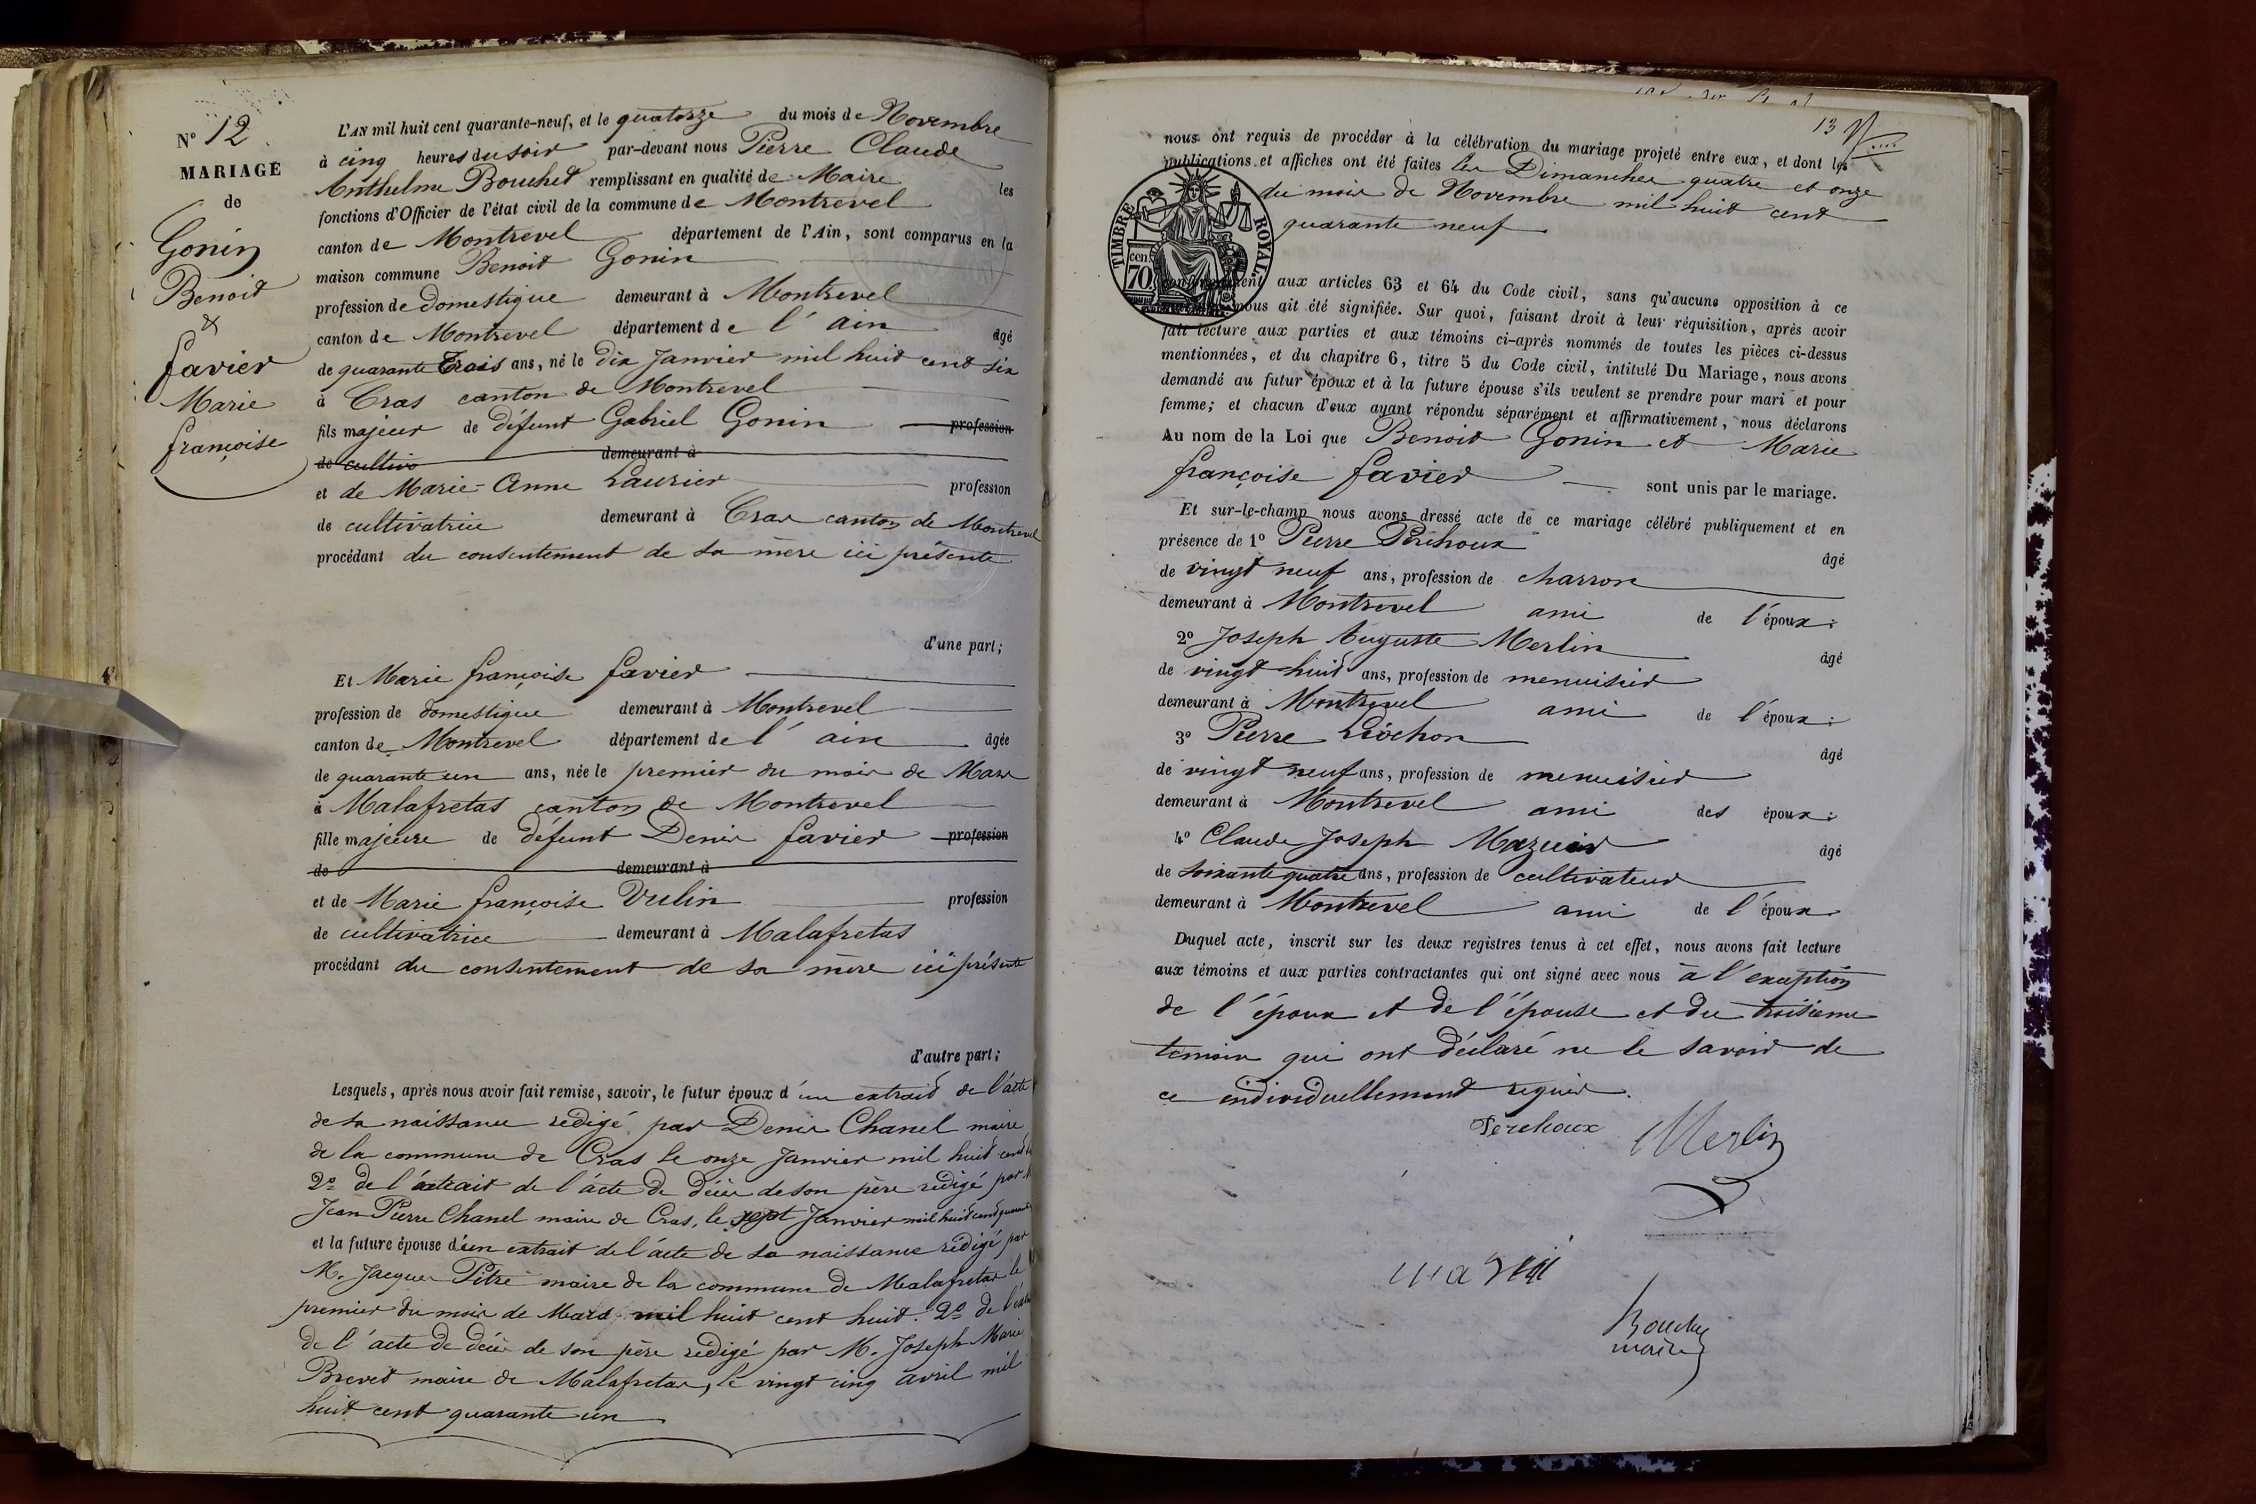 N° 12
MARIAGE
de
Gonin
Benoit
&
favier
Marie
françoise
L'AN mil huit cent quarante-neuf, et le quatorze du mois de Novembre
à cinq heures du soir par-devant nous Pierre Claude
Anthelme Bouchet remplissant en qualité de Maire les
fonctions d'Officier de l'état civil de la commune de Montrevel
canton de Montrevel département de l'Ain, sont comparus en la
maison commune Benoit Gonin
profession de domestique demeurant à Montrevel
canton de Montrevel département de l'ain âgé
de quarante trois ans, né le dix Janvier mil huit cent six
à Cras canton de Montrevel
fils majeur de défunt Gabriel Gonin profession
de cultiv demeurant à
et de Marie-Anne Laurier profession
de cultivatrice demeurant à Cras canton de Montrevel
procédant du consentement de sa mère ici présente
d'une part;
Et Marie françoise favier
profession de domestique demeurant à Montrevel
canton de Montrevel département de l'ain âgée
de quarante un ans, née le premier du mois de Mars
à Malafretas canton de Montrevel
fille majeure de défunt Denis favier profession
de demeurant à
et de Marie françoise Vulin profession
de cultivatrice demeurant à Malafretas
procédant du consentement de sa mère ici présente
d'autre part;
Lesquels, après nous avoir fait remise, savoir, le futur époux d'un extrait de l'acte
de sa naissance rédigé par Denis Chanel maire
de la commune de Cras le onze Janvier mil huit cent
2° de l'extrait de l'acte de décès de son père rédigé par
Jean Pierre Chanel maire de Cras, le sept Janvier mil huit cent quarante
et la future épouse d'un extrait de l'acte de sa naissance rédigé par
M. Jacques Pitre maire de la commune de Malafretas le
premier du mois de Mars mil huit cent huit. 2° de
de l'acte de décès de son père rédigé par M. Joseph Marie
Brevet maire de Malafretas, le vingt cinq avril mil
huit cent quarante un
13
nous ont requis de procéder à la célébration du mariage projeté entre eux, et dont les
publications et affiches ont été faites les Dimanches quatre et onze
du mois de Novembre mil huit cent
quarante neuf
TIMBRE ROYAL.
70 cen
aux articles 63 et 64 du Code civil, sans qu'aucune opposition à ce
nous ait été signifiée. Sur quoi, faisant droit à leur réquisition, après avoir
fait lecture aux parties et aux témoins ci-après nommés de toutes les pièces ci-dessus
mentionnées, et du chapitre 6, titre 5 du Code civil, intitulé Du Mariage, nous avons
demandé au futur époux et à la future épouse s'ils veulent se prendre pour mari et pour
femme; et chacun d'eux ayant répondu séparément et affirmativement, nous déclarons
Au nom de la Loi que Benoit Gonin et Marie
françoise favier sont unis par le mariage.
Et sur-le-champ nous avons dressé acte de ce mariage célébré publiquement et en
présence de 1° Pierre Péréhoux âgé
de vingt neuf ans, profession de charron
demeurant à Montrevel ami de l'époux;
2° Joseph Auguste Merlin âgé
de vingt huit ans, profession de menuisier
demeurant à Montrevel ami de l'époux;
3° Pierre Liochon âgé
de vingt neuf ans, profession de menuisier
demeurant à Montrevel ami des époux;
4° Claude Joseph Mazuir âgé
de soixante quatre ans, profession de cultivateur
demeurant à Montrevel ami de l'époux
Duquel acte, inscrit sur les deux registres tenus à cet effet, nous avons fait lecture
aux témoins et aux parties contractantes qui ont signé avec nous à l'exception
de l'époux et de l'épouse et du troisième
témoin qui ont déclaré ne le savoir de
ce individuellement requis.
Péréhoux Merlin
Bouchet
maire